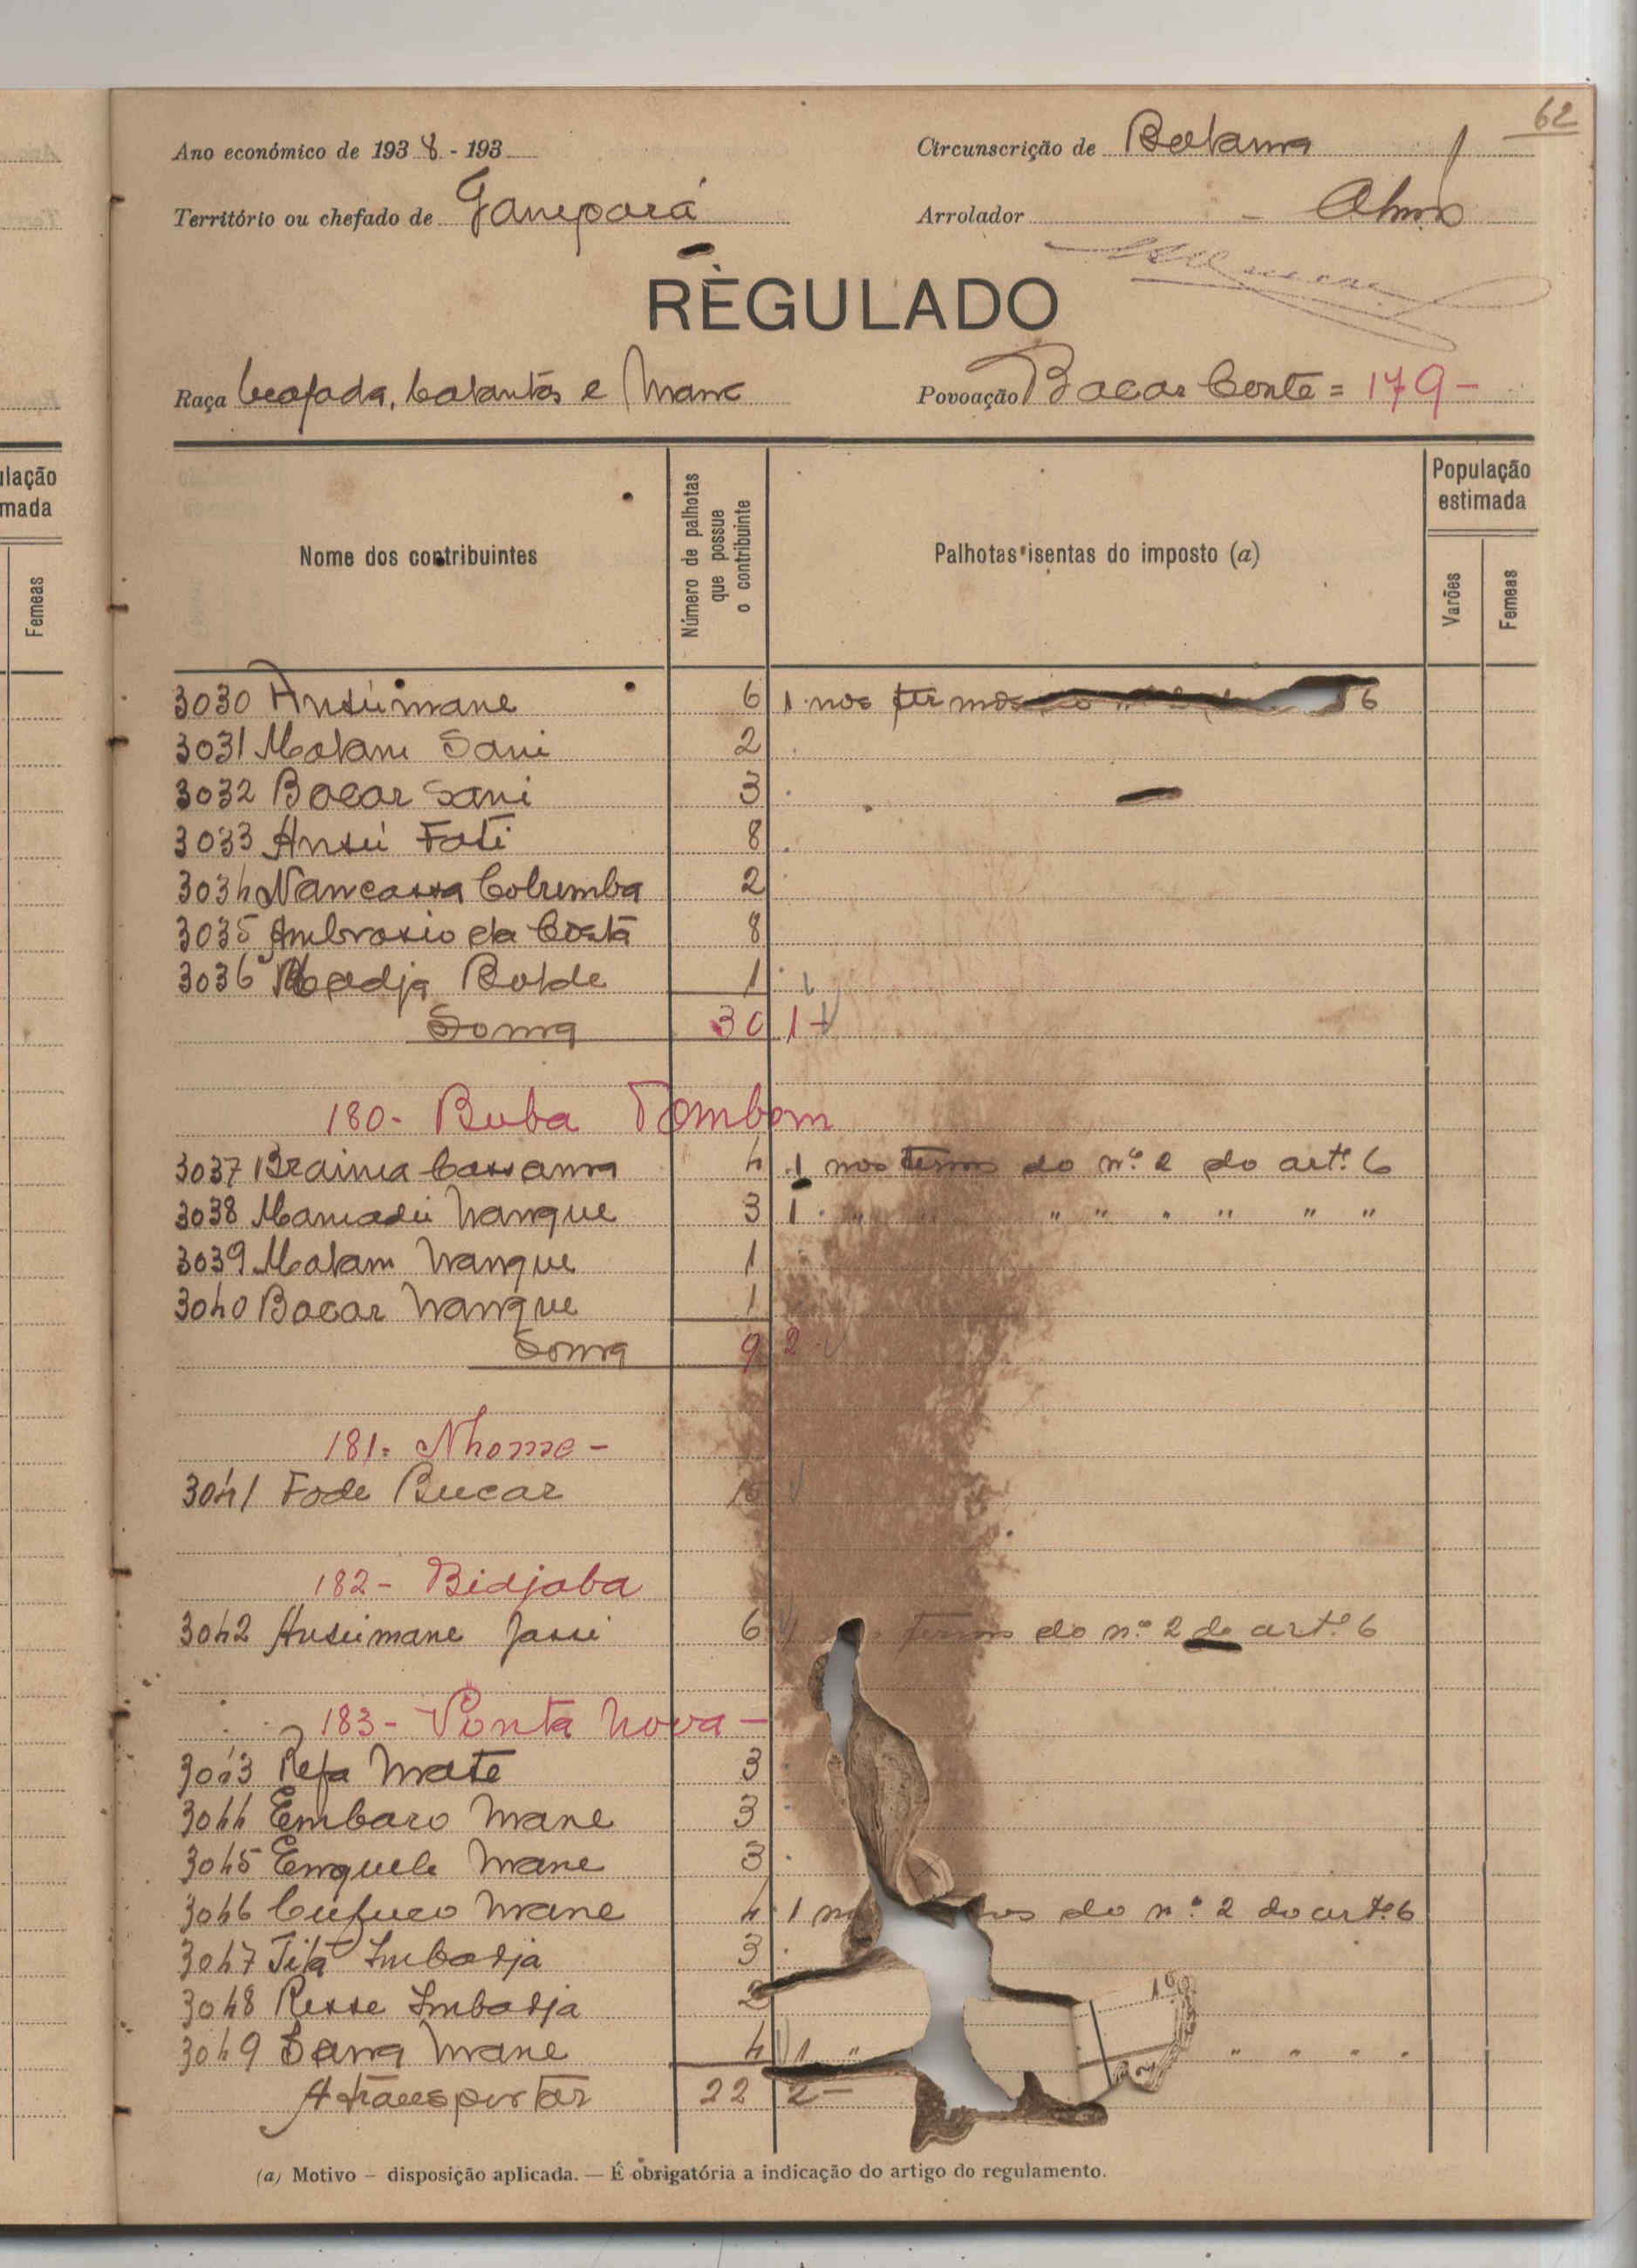 62
Ano económico de 1938 - 193
Circunscrição de Bolama
Território ou chefado de Ganepará
Arrolador
REGULADO
Raça Beafada, balantas e Manc
Povoação Bacar Conte = 179 -
lação
mada
Femeas
Nome dos contribuintes
Número de palhotas que possue o contribuinte
Palhotas isentas do imposto (a)
População estimada
Varões
Femeas
3030 Ansúmane 6 1 nos termos 6
3031 Malam Sani 2
3032 Bacar Sani 3
3033 Ansú Fati 8
3034 Nancassa Columba 2
3035 Ambrosio da Costa 8
3036 Balde 1
Soma 30 1
180 - Buba Tombom
3037 Braima Cassama 4 1 nos termos do n.º 2 do art.º 6
3038 Mamadú Nanque 3 1 " " " " " " " "
3039 Malam Nanque 1
3040 Bacar Nanque 1
Soma 9 2
181 - Nhome -
3041 Fode Bucar
182 - Bidjaba
3042 Ansumane Jassi 6 termos do n.º 2 do art.º 6
183 - Ponta Nova -
3043 Refa Mate 3
3044 Embaro Mane 3
3045 Enquele Mane 3
3046 Cufuco Mane 4 1 do n.º 2 do art.º 6
3047 Tita Imbadja 3
3048 Resse Imbadja 2
3049 Sana Mane 4 1 " " " " "
A transportar 22 2 -
(a) Motivo — disposição aplicada. — É obrigatória a indicação do artigo do regulamento.